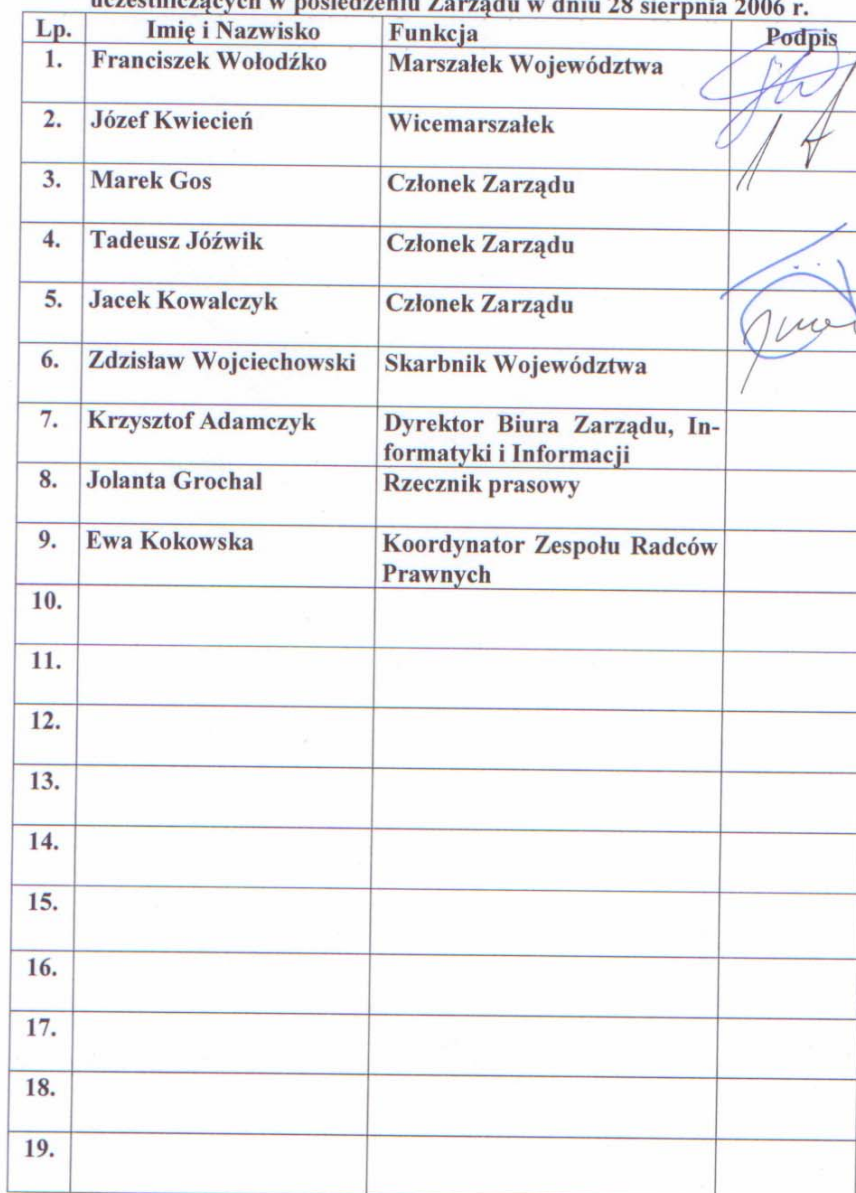 uczestniczących w posiedzeniu Zarządu w dniu 28 sierpnia 2006 r.
Lp. Imię i Nazwisko Funkcja Podpis
1. Franciszek Wołodźko Marszałek Województwa
2. Józef Kwiecień Wicemarszałek
3. Marek Gos Członek Zarządu
4. Tadeusz Jóźwik Członek Zarządu
5. Jacek Kowalczyk Członek Zarządu
6. Zdzisław Wojciechowski Skarbnik Województwa
7. Krzysztof Adamczyk Dyrektor Biura Zarządu, In-
formatyki i Informacji
8. Jolanta Grochal Rzecznik prasowy
9. Ewa Kokowska Koordynator Zespołu Radców
Prawnych
10.
11.
12.
13.
14.
15.
16.
17.
18.
19.